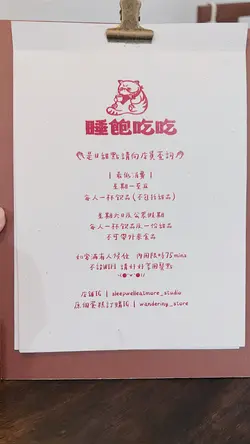 睡飽吃吃
是日甜點請向店員查詢
| 最低消費 |
星期一至五
每人一杯飲品 (不包括甜品)
星期六日及公眾假期
每人一杯飲品及一份甜品
不可帶外來食品
如客滿有人候位 內用限時75mins
不設WIFI 請好好享用餐點
店舖IG | sleepwelleatmore_studio
原個蛋糕訂購IG | wandering_store